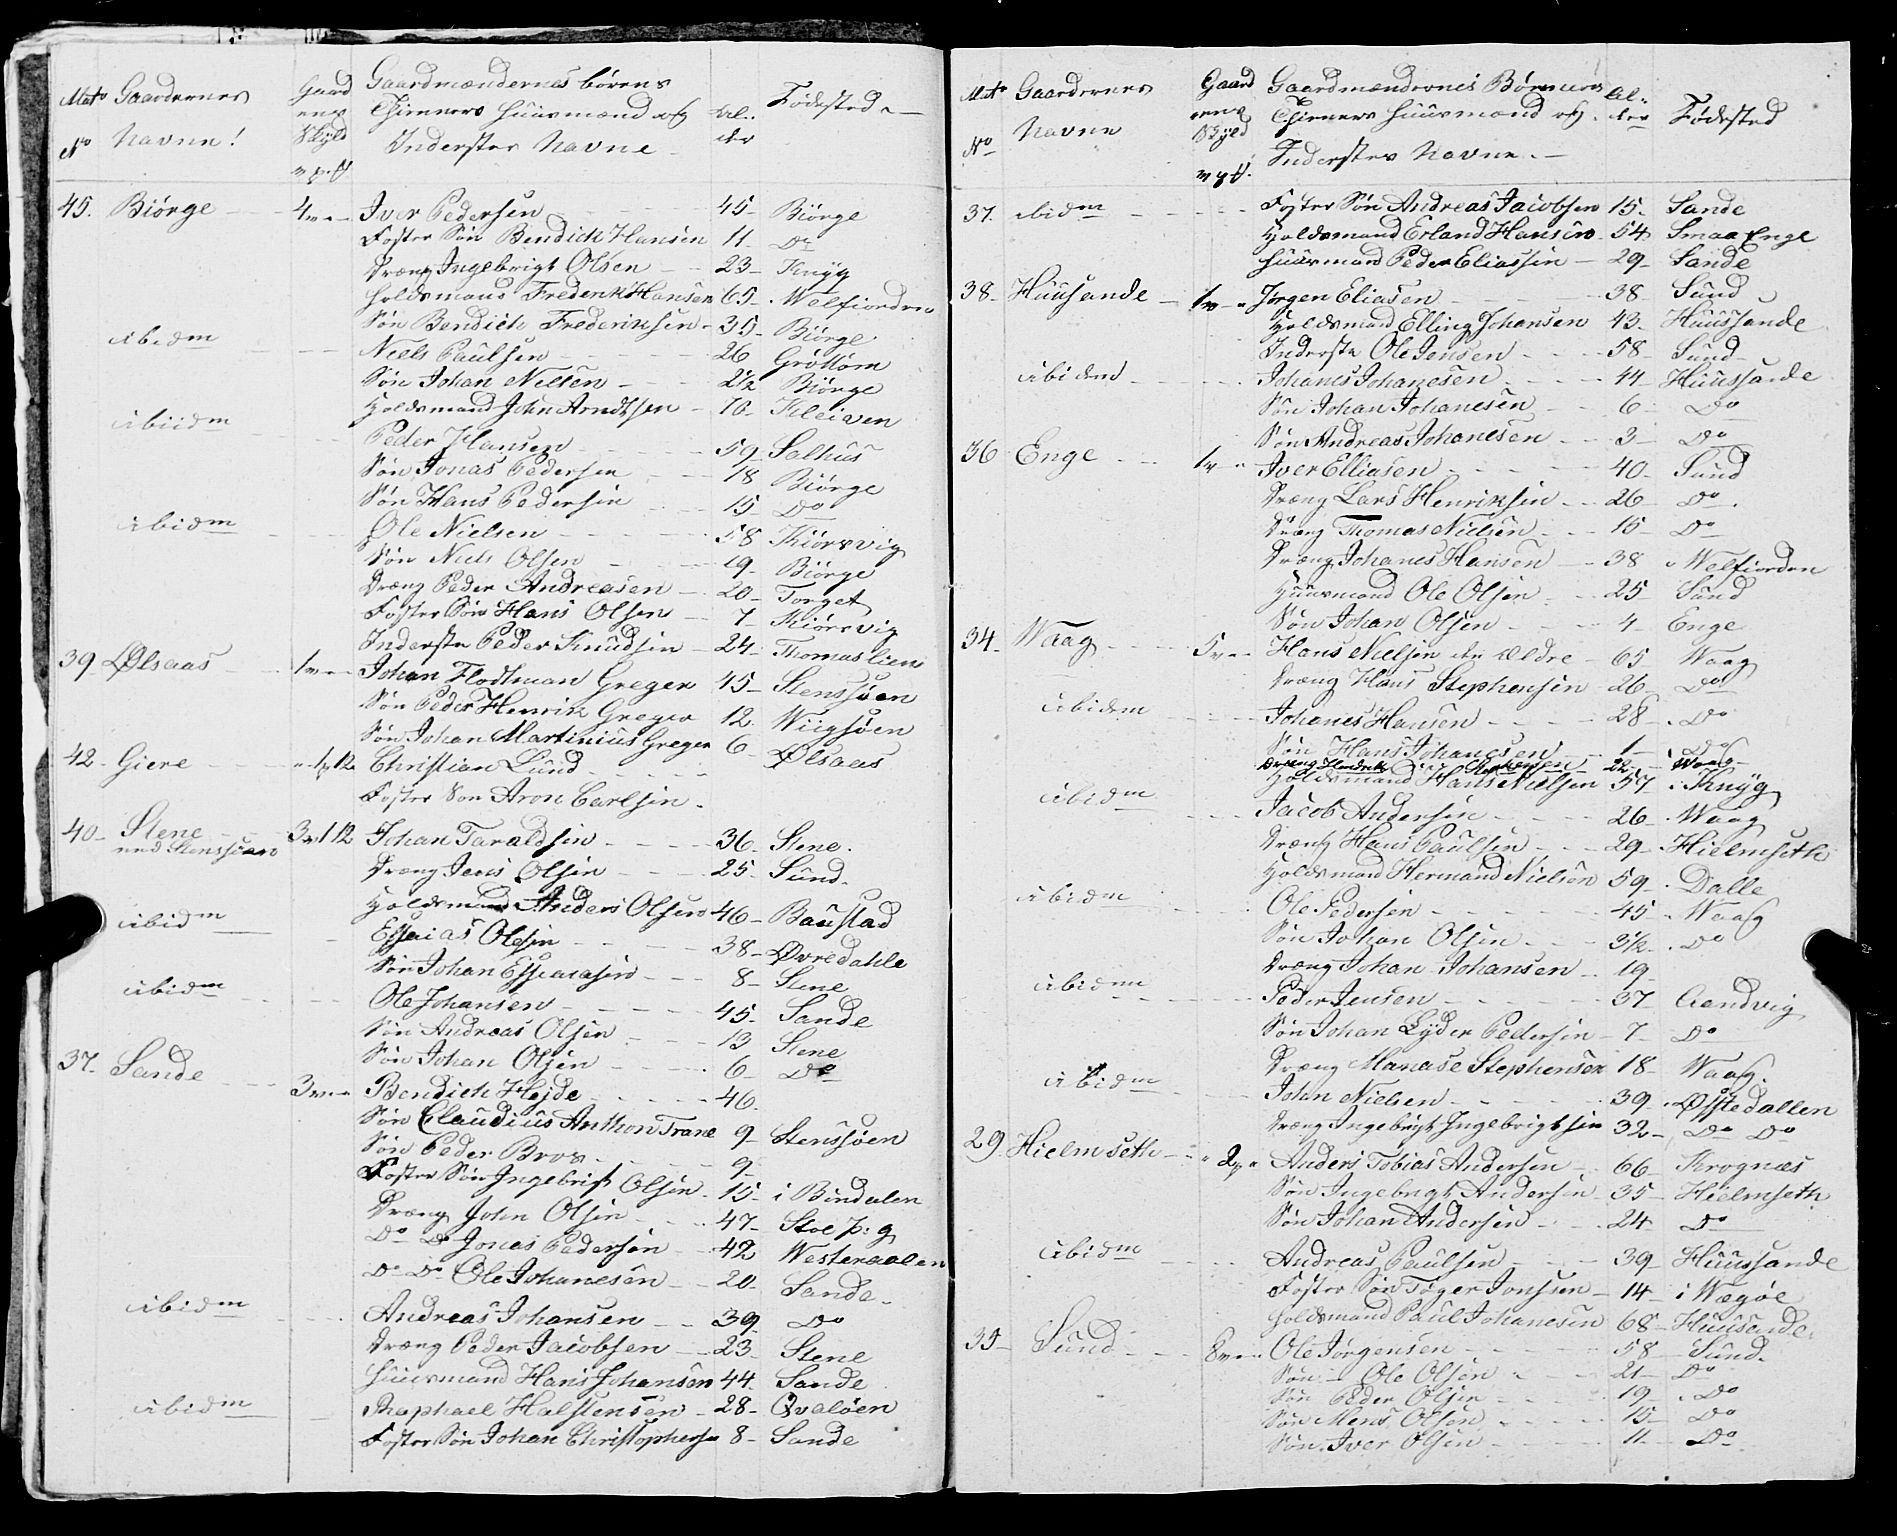 Mat: Gaardernes Gaard Gaardmændernes börens
ens Tjeneres Huusmænd og Al. Födested
No Navne! Skyld Indersters Navne der
45. Biörge 4 Iver Pedersen 45 Biörge
Foster Sön Bendich Hansen 11 Do
Dræng Ingebrigt Olsen 23 Knÿg
Holdsmand Frederik Hansen 65 Welfiorden
Sön Bendich Frederiksen 35 Biörge
ibidm Niels Paulsen 26 Gröttöm
Sön Johan Nielsen 2½ Biörge
Holdsmand John Arndtsen 70 Kleiven
ibiidm Peder Hansen 59 Salhus
Sön Jonas Pedersen 18 Biörge
Sön Hans Pedersen 15 Do
ibidm Ole Nielsen 58 Kiörsvig
Sön Niels Olsen 19 Biörge
Dræng Peder Andreasen 20 Torget
Foster Sön Hans Olsen 7 Kiörsvig
Inderste Peder Knudsen 24 Thomaslien
39 Ølsaas 1 Johan Flodtman Greger 45 Stenssøen
Sön Peder Henrik Greger 12 Wiigsøen
Sön Johan Martinius Greger 6 Ølsaas
42 Giere 1 12 Christian Lund
Foster Sön Aron Carlsen
40 Stene 3 1 12 Johan Taraldsen 36 Stene
med Stenssöen
Dræng Jens Olsen 25 Sund
Holdsmand Anders Olsen 46 Baustad
ibidm Essaias Olsen 38 Øvredahle
Sön Johan Essaiasen 8 Stene
ibidm Ole Johansen 45 Sande
Sön Andreas Olsen 13 Stene
Sön Johan Olsen 6 Do
37 Sande 3 Bendich Hejde 46
Sön Claudius Anthon Trane 9 Stenssøen
Sön Peder Brox 9
Foster Sön Ingebrigt Olsen 15 i Bindalen
Dræng John Olsen 47 Stoe
Do Do Jonas Pedersen 42 Westeraalen
Do Do Ole Johanesen 20 Sande
ibidm Andreas Johansen 39 Do
Dræng Peder Jacobsen 23 Stene
Huusmand Hans Johansen 44 Sande
ibidm Raphael Halstensen 28 Qvaløen
Foster Sön Johan Christophersen 8 Sande
Mat: Gaardernes Gaard Gaardmændernes Börns
ens Tjeneres Huusmænd og Al der Födested
No Navne Skyld Indersters Navne
37. ibidm Foster Sön Andreas Jacobsen 15 Sande
Holdsmand Erland Hansen 54 Smaa Enge
Huusmand Peder Eliassen 29 Sande
38 Huusande 1 Jørgen Eliasen 38 Sund
Holdsmand Elling Johansen 43 Huussande
Inderste Ole Jensen 58 Sund
ibidem Johanes Johanesen 44 Huussande
Sön Johan Johanesen 6 Do
Sön Andreas Johanesen 3 Do
36 Enge 1 Iver Elliasen 40 Sund
Dræng Lars Henriksen 26 Do
Dræng Thomas Nielsen 15 Do
Dræng Johanes Hansen 38 Welfiorden
Huusmand Ole Olsen 25 Sund
Sön Johan Olsen 4 Enge
34 Waag 5 Hans Nielsen den Ældre 65 Waag
Dræng Hans Stephensen 26 Do
ibidem Johanes Hansen 28 Do
Sön Hans Johanesen 1 Do
Dræng Hendrik Stephensen 22 Waag
Holdsmand Hans Nielsen 57 i Knÿg
ibidm Jacob Andersen 26 Waag
Dræng Hans Paulsen 29 Hielmseth
Holdsmand Hermand Nielsen 59 Dalle
ibidm Ole Pedersen 45 Waag
Sön Johan Olsen 3½ Do
Dræng Johan Johansen 19
ibidm Peder Jensen 37 Aandvig
Sön Johan Lÿder Pedersen 7 Do
Dræng Manase Stephensen 18 Waag
ibidm John Nielsen 39 Øfstedallen
Dræng Ingebrigt Ingebrigtsen 32 Do Do
29 Hielmseth 2 Anders Tobias Andersen 66 Krognæs
Sön Ingebrigt Andersen 35 Hielmseth
Sön Johan Andersen 24 Do
ibidm Andreas Paulsen 39 Huussande
Foster Sön Töger Jonssen 14 i Wegøe
Holdsmand Paul Johanesen 68 Huusande
35 Sund 8 Ole Jörgensen 58 Sund
Sön Ole Olsen 21 Do
Sön Peder Olsen 19 Do
Sön Mens Olsen 15 Do
Sön Iver Olsen 11 Do